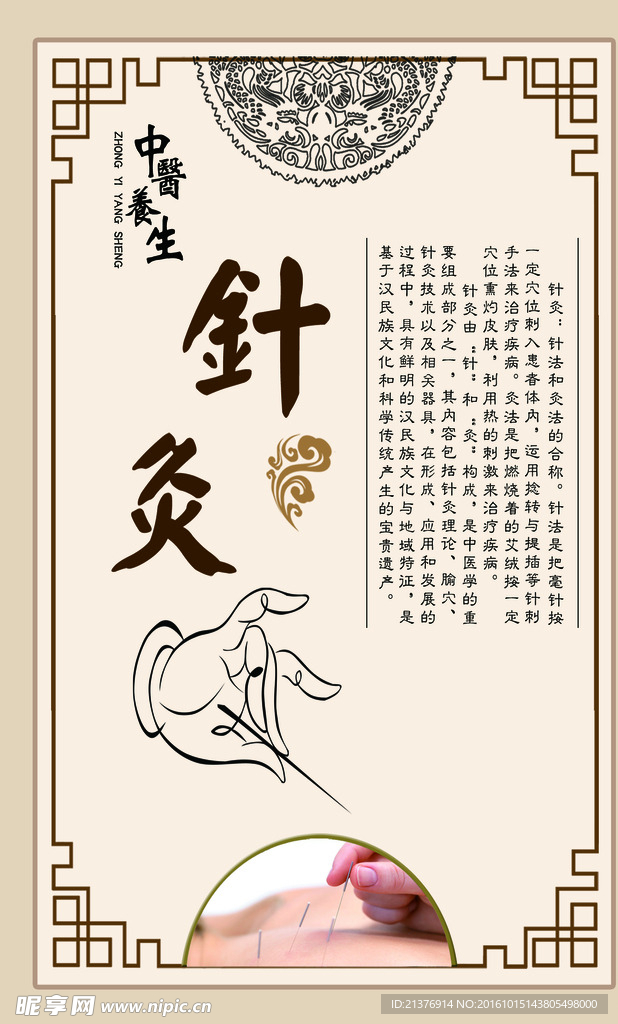 中醫養生
ZHONG YI YANG SHENG
針灸
针灸：针法和灸法的合称。针法是把毫针按
一定穴位刺入患者体内，运用捻转与提插等针刺
手法来治疗疾病。灸法是把燃烧着的艾绒按一定
穴位熏灼皮肤，利用热的刺激来治疗疾病。
针灸由“针”和“灸”构成，是中医学的重
要组成部分之一，其内容包括针灸理论、腧穴、
针灸技术以及相关器具，在形成、应用和发展的
过程中，具有鲜明的汉民族文化与地域特征，是
基于汉民族文化和科学传统产生的宝贵遗产。
昵享网 www.nipic.cn
ID:21376914 NO:20161015143805498000